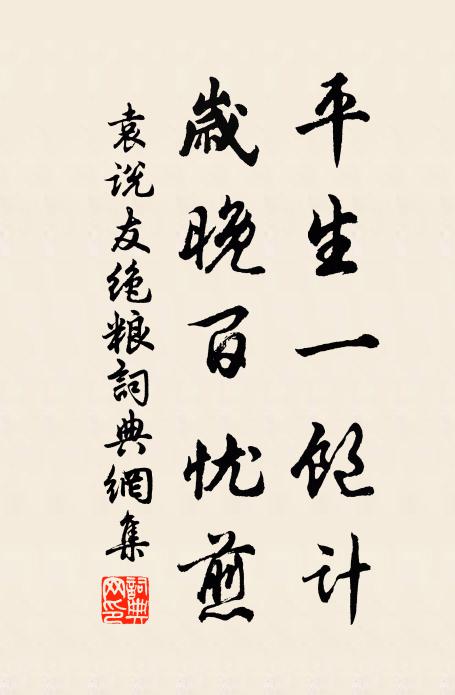 平生一饱计
歳晚百忧煎
袁说友绝粮詞典網集
詞典网印